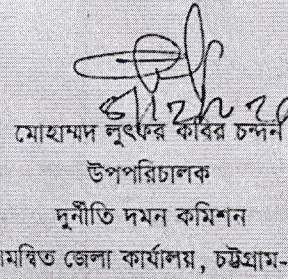 মোহাম্মদ লুৎফর কবির চন্দন
উপপরিচালক
দুর্নীতি দমন কমিশন
জেলা কার্যালয়, চট্টগ্রাম-